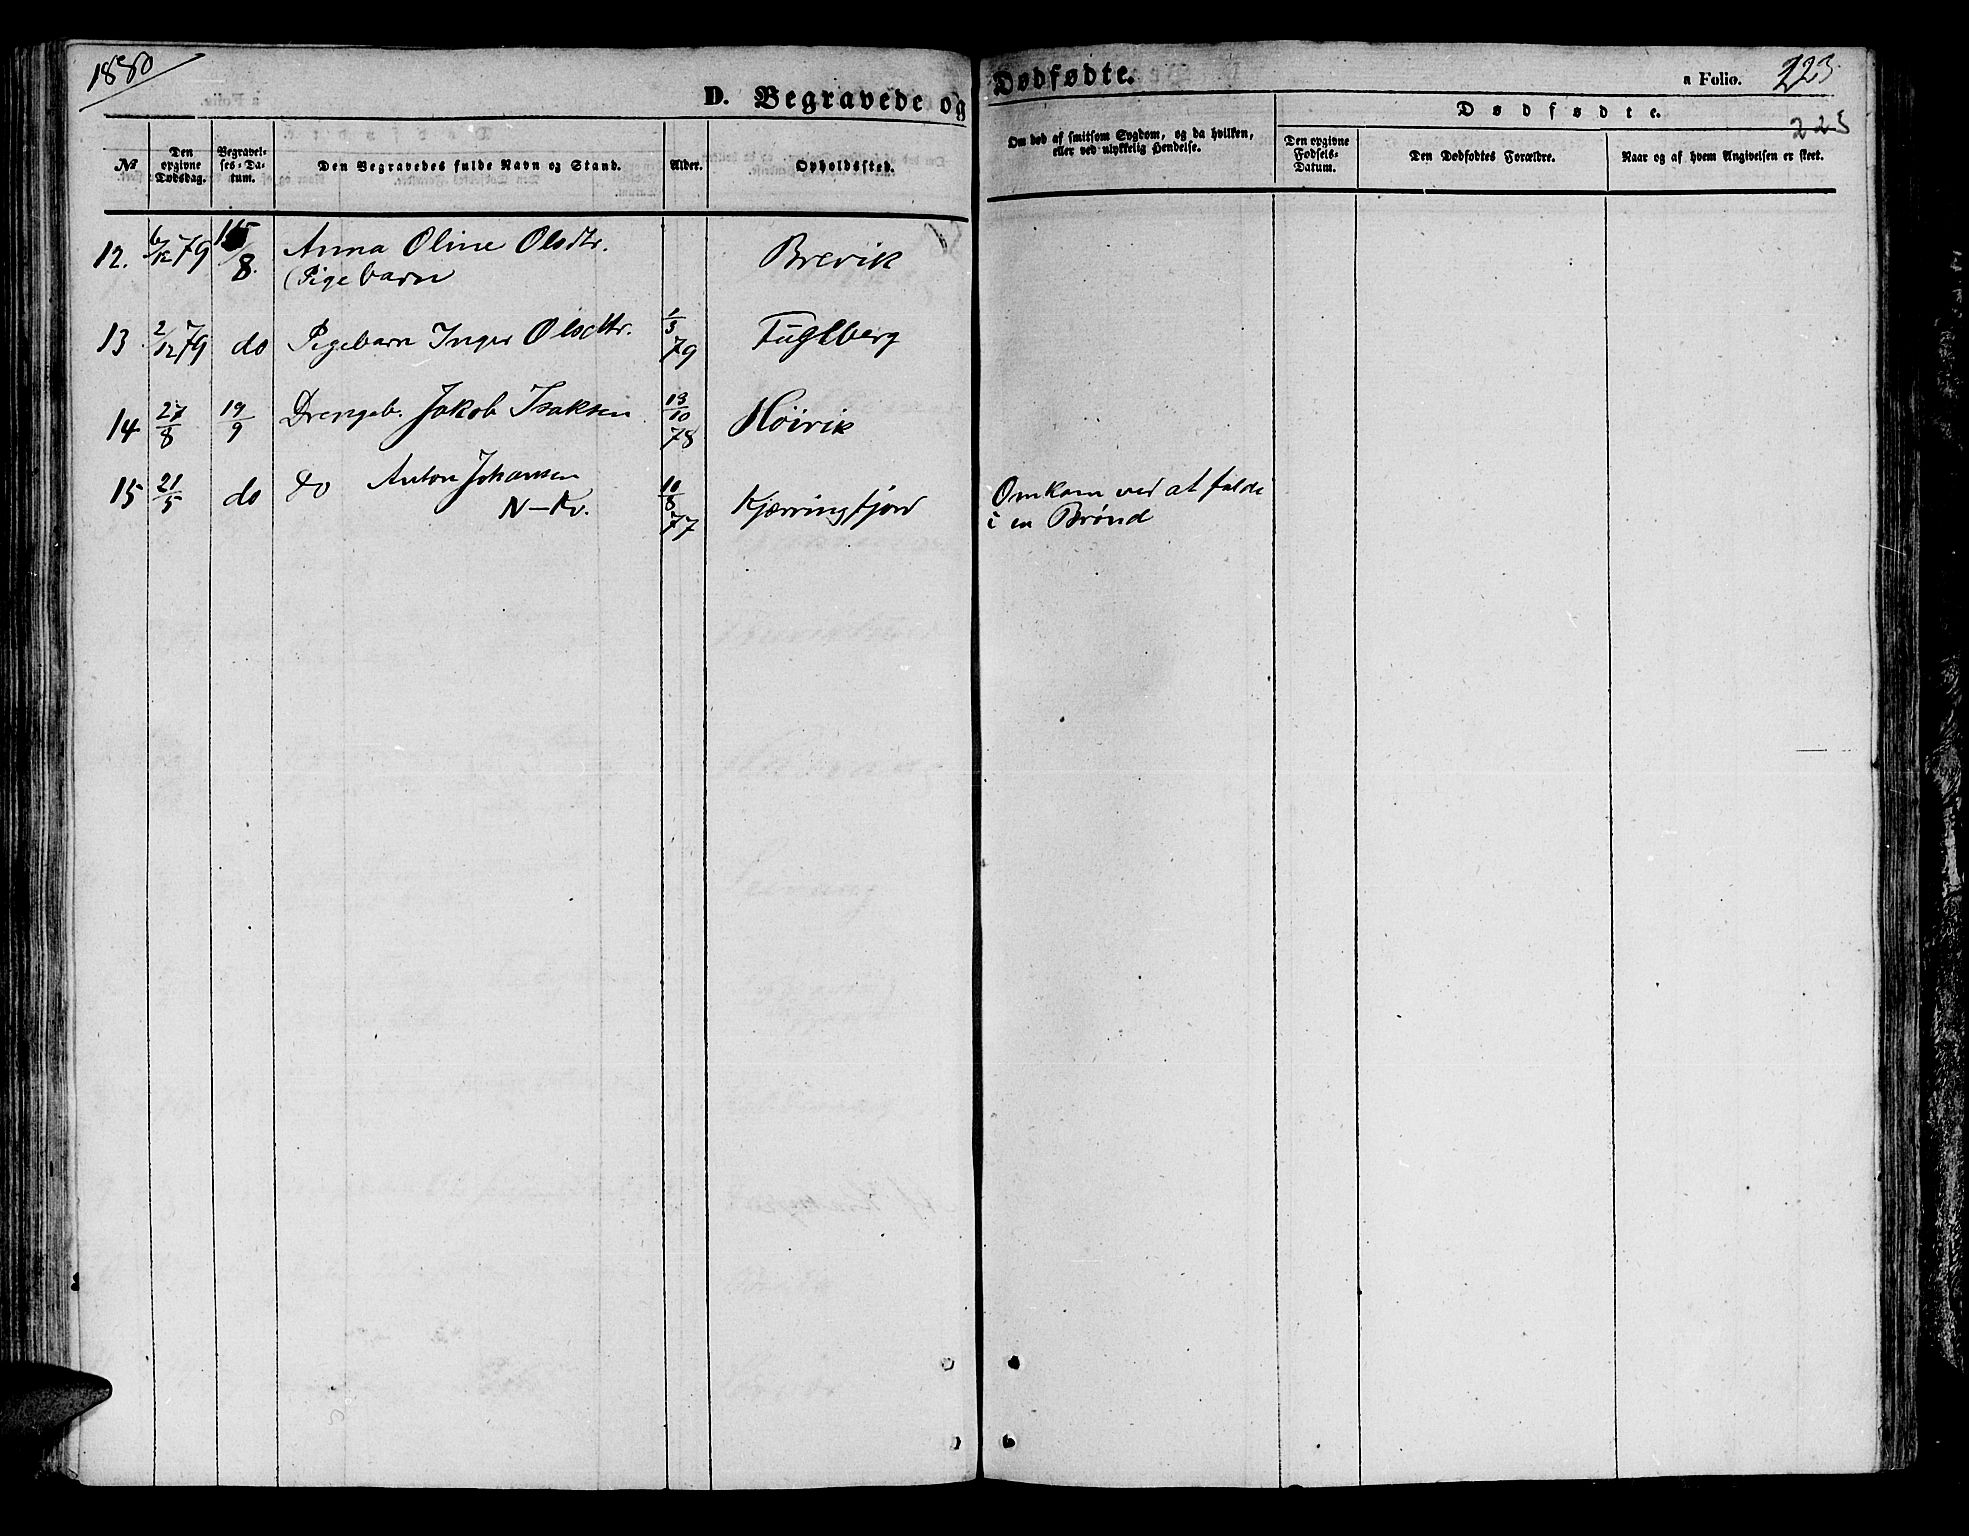 1880
D. Begravede og Dødfødte.
a Folio. 223
223
Dødfødte.
№
Den opgivne Dødsdag.
Begravelses-Datum.
Den Begravedes fulde Navn og Stand.
Alder.
Opholdssted.
Om død af smitsom Sygdom, og da hvilken, eller ved ulykkelig Hendelse.
Den opgivne Fødsels-Datum.
Den Dødfødtes Forældre.
Naar og af hvem Angivelsen er skeet.
12. 6/12 79 15/8. Anna Oline Olsdtr. Brevik
(Pigebarn
13 2/12 79 do Pigebarn Inger Olsdtr. 1/3 79 Fuglberg
14 27/8 19/9 Drengeb. Jakob Isaksen 13/10 78 Høivik
15 21/5 do do Anton Johansen 10/8 77 Kjærringfjord Omkom ved at falde
N-Kv. i en Brønd